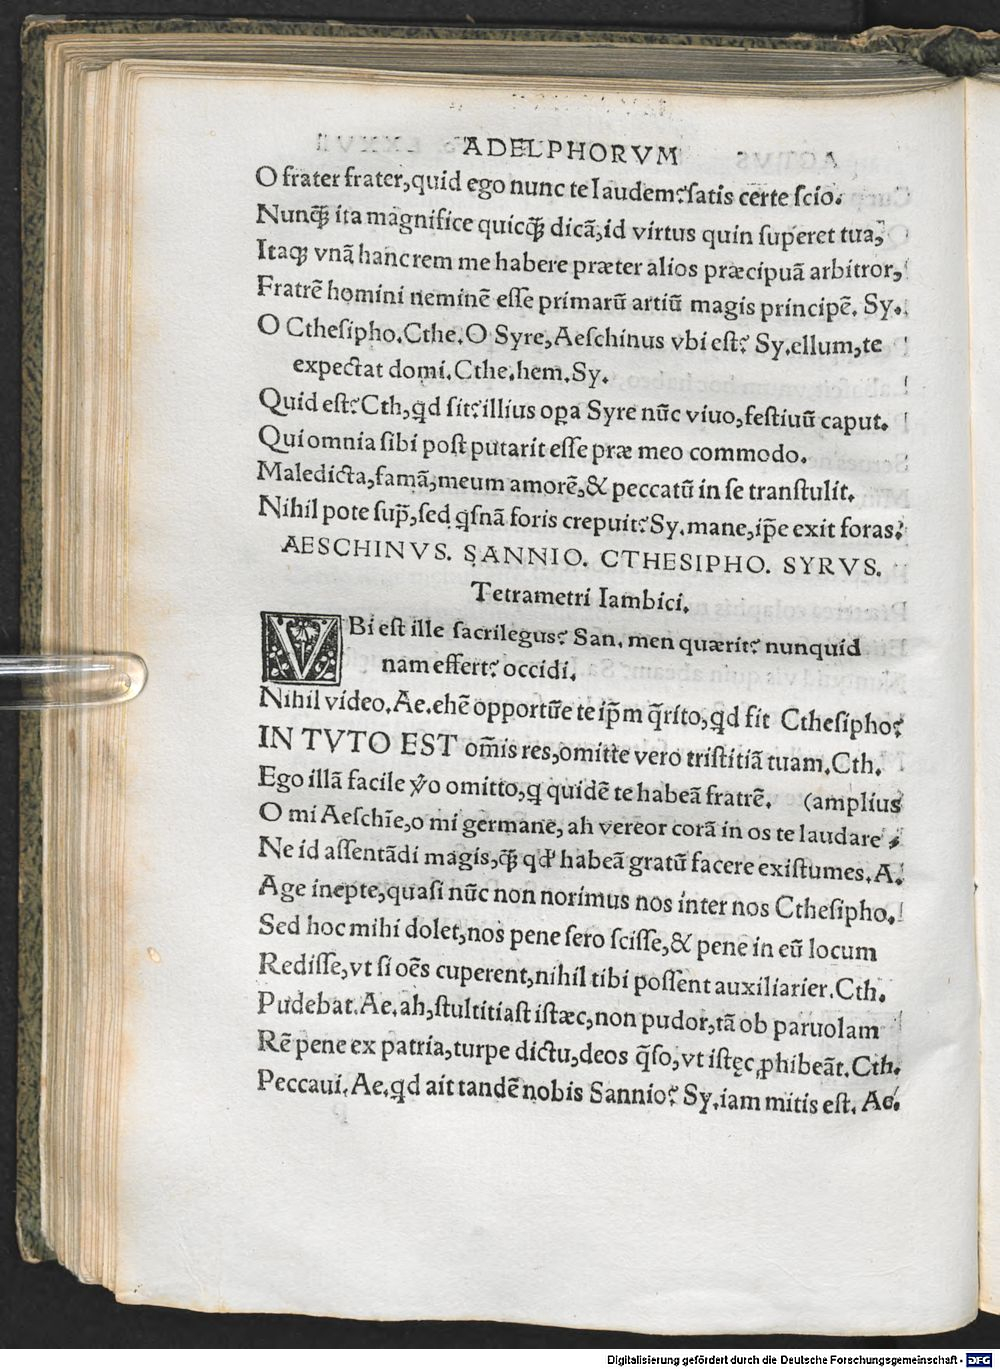 ADELPHORVM
O frater frater,quid ego nunc te laudem?ſatis certe ſcio.
Nunq̃ȝ ita magnifice quicq̃ȝ dicã,id virtus quin ſuperet tua,
Itaqȝ vnã hanc rem me habere præter alios præcipuã arbitror,
Fratrẽ homini neminẽ eſſe primarũ artiũ magis principẽ. Sy.
O Ctheſipho.Cthe.O Syre,Aeſchinus vbi eſt? Sy.ellum,te
expectat domi.Cthe.hem.Sy.
Quid eſt?Cth,qd ſit?illius opa Syre nũc viuo,feſtiuũ caput.
Qui omnia ſibi poſt putarit eſſe præ meo commodo.
Maledicta,famã,meum amorẽ,& peccatũ in ſe tranſtulit.
Nihil pote ſup̃,ſed qſnã foris crepuit?Sy.mane,ip̃e exit foras.
AESCHINVS. SANNIO. CTHESIPHO. SYRVS.
Tetrametri Iambici.
VBi eſt ille ſacrilegus? San. men quærit? nunquid
nam effert? occidi.
Nihil video.Ae.ehẽ opportũe te ip̃m q̃rito,qd fit Ctheſipho?
IN TVTO EST om̃is res,omitte vero triſtitiã tuam.Cth.
Ego illã facile v̊o omitto,q quidẽ te habeã fratrẽ. (amplius
O mi Aeſchĩe,o mi germane, ah vereor corã in os te laudare
Ne id aſſentãdi magis,q̃ȝ qd' habeã gratũ facere exiſtumes.A.
Age inepte,quaſi nũc non norimus nos inter nos Ctheſipho.
Sed hoc mihi dolet,nos pene ſero ſciſſe,& pene in eũ locum
Rediſſe,vt ſi oẽs cuperent,nihil tibi poſſent auxiliarier.Cth.
Pudebat.Ae.ah,ſtultitiaſt iſtæc,non pudor,tã ob paruolam
Rẽ pene ex patria,turpe dictu,deos q̃ſo,vt iſtęc ꝓhibeãt.Cth.
Peccaui.Ae.qd ait tandẽ nobis Sannio? Sy.iam mitis eſt. Ae.
Digitalisierung gefördert durch die Deutsche Forschungsgemeinschaft - DFG